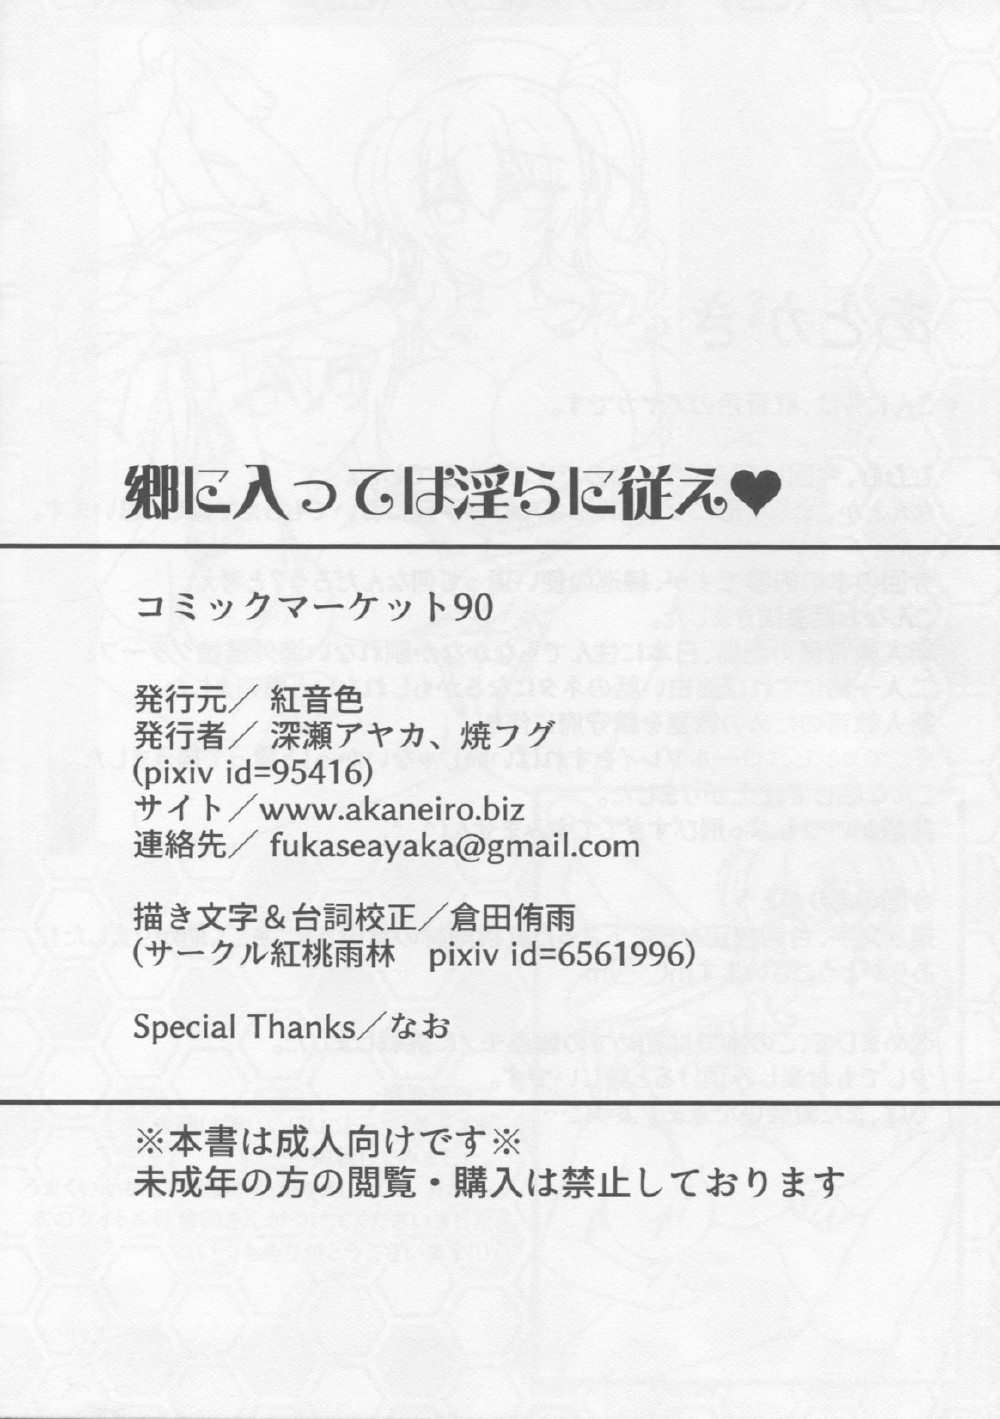 郷に入っては淫らに従え♥
コミックマーケット90
発行元／ 紅音色
発行者／ 深瀬アヤカ、焼フグ
(pixiv id=95416)
サイト／www.akaneiro.biz
連絡先／ fukaseayaka@gmail.com
描き文字＆台詞校正／倉田侑雨
(サークル紅桃雨林　pixiv id=6561996)
Special Thanks／なお
※本書は成人向けです※
未成年の方の閲覧・購入は禁止しております